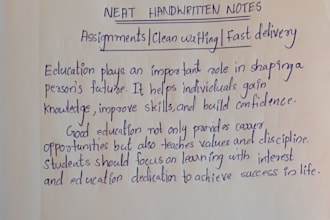 NEAT HANDWRITTEN NOTES
Assignments | Clean writing | fast delivery
Education plays an important role in shaping a
person's future. It helps individuals gain
knowledge, improve skills, and build confidence.
Good education not only provides career
opportunities but also teaches values and discipline.
Students should focus on learning with interest
and education dedication to achieve success in life.